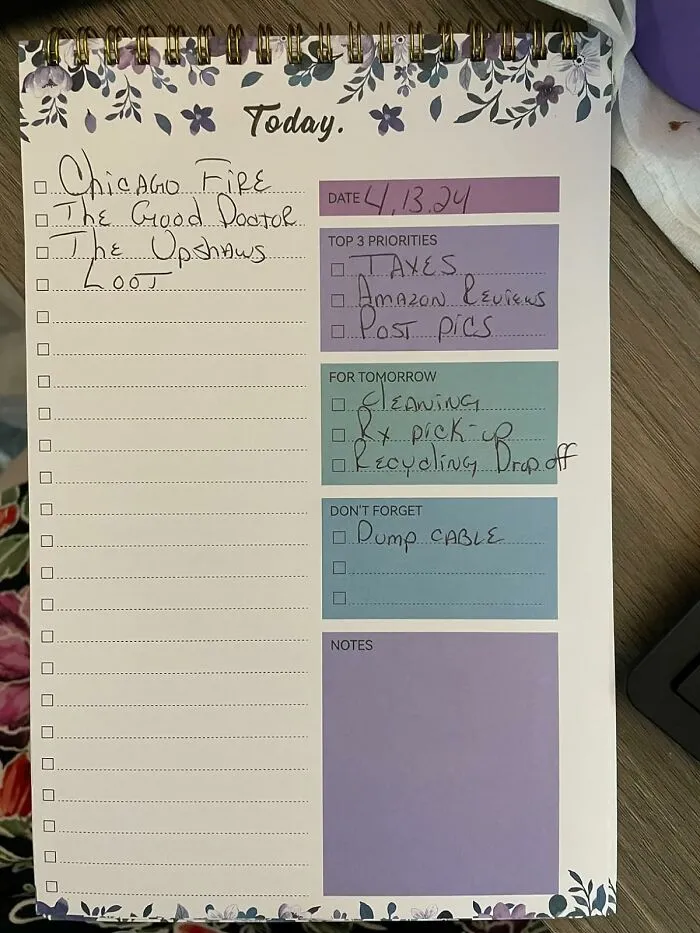 Today.
Chicago Fire
The Good Doctor
The Upshaws
Loot
DATE 4.13.24
TOP 3 PRIORITIES
TAXES
Amazon Reviews
Post pics
FOR TOMORROW
Cleaning
Rx pick-up
Recycling Drop off
DON'T FORGET
Dump CABLE
NOTES